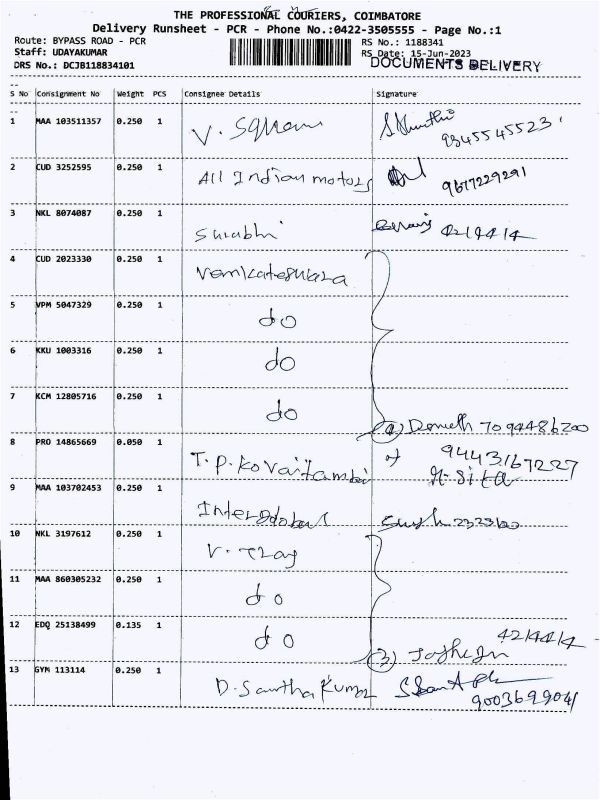 THE PROFESSIONAL COURIERS, COIMBATORE
Delivery Runsheet - PCR - Phone No.:0422-3505555 - Page No.:1
Route: BYPASS ROAD - PCR
Staff: UDAYAKUMAR
DRS No.: DCJB118834101
RS No.: 1188341
RS Date: 15-Jun-2023
DOCUMENTS DELIVERY
S No Consignment No Weight PCS Consignee Details Signature
1 MAA 103511357 0.250 1 V. Sqham 9345545523
2 CUD 3252595 0.250 1 All Indian motors 9677229291
3 NKL 8074087 0.250 1 Surabhi 4214414
4 CUD 2023330 0.250 1 Venkateswara
5 VPM 5047329 0.250 1 do
6 KKU 1003316 0.250 1 do
7 KCM 12805716 0.250 1 do (4) 7094486200
8 PRO 14865669 0.050 1 T.P. Kovaitambi 9443167227
9 MAA 103702453 0.250 1 2323120
10 NKL 3197612 0.250 1
11 MAA 860305232 0.250 1 do
12 EDQ 25138499 0.135 1 do (3) 4214414
13 GYM 113114 0.250 1 D. Santha Kumar 9003699041